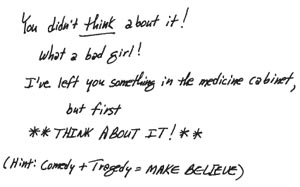 You didn't think about it!
What a bad girl!
I've left you something in the medicine cabinet,
but first
**THINK ABOUT IT!**
(Hint: Comedy + Tragedy = MAKE BELIEVE)